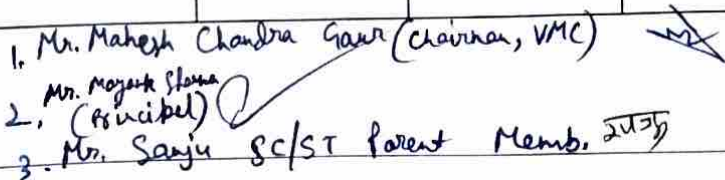 1. Mr. Mahesh Chandra Gaur (Chairman, VMC)
2. Mr. Mayank Sharma
(Principal)
3. Mr. Sanju SC/ST Parent Memb.